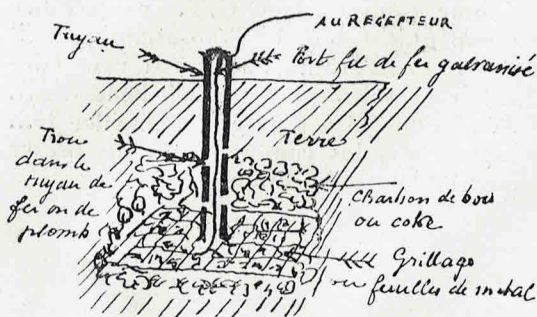 AU RECEPTEUR
Tuyau
Fort fil de fer galvanisé
Terre
Trou
dans le
tuyau de
fer ou de
plomb
Charbon de bois
ou coke
Grillage
ou feuilles de métal